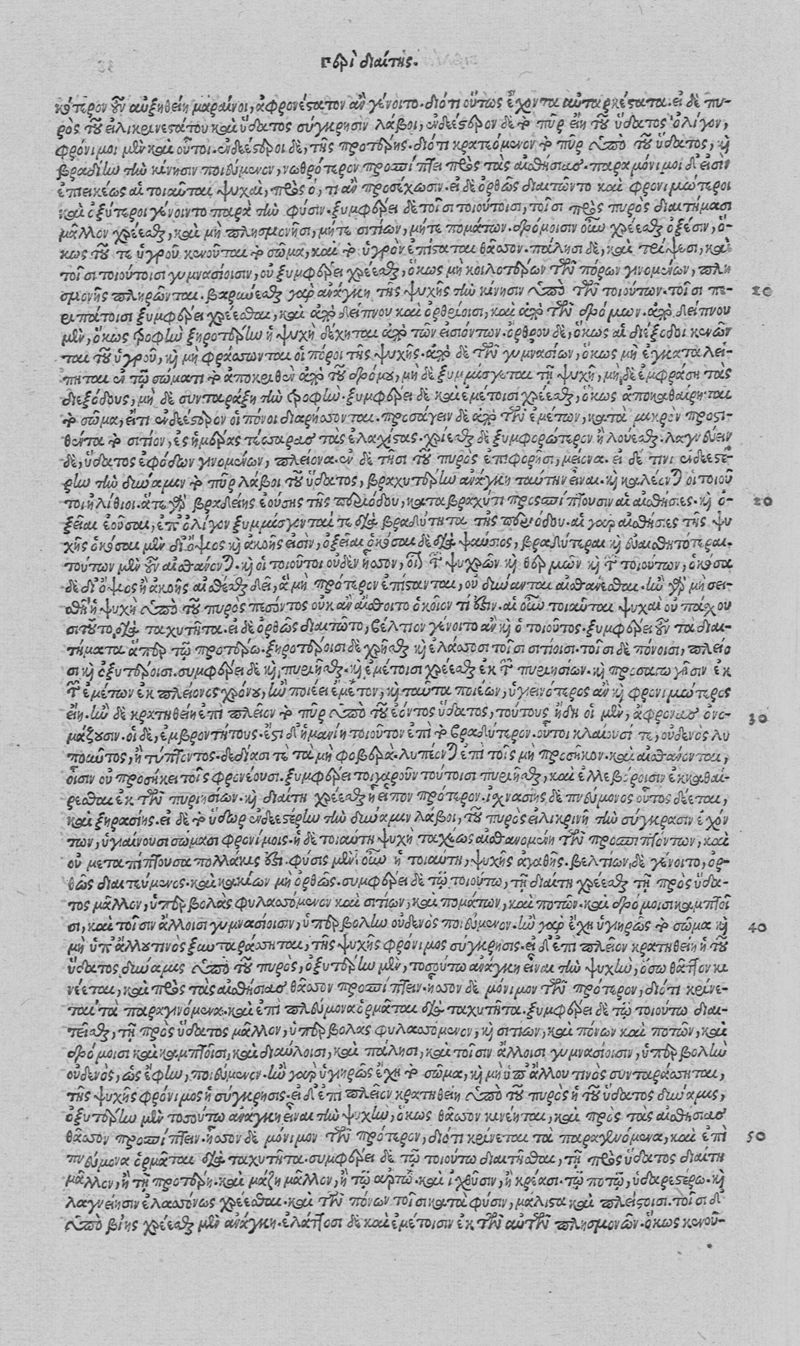 Περὶ διαίτης.
κότερον οὖν αὐξηθείη μαραίνοι, ἀφρονέστατον ἂν γένοιτο. διότι οὕτως ἔχοντα αὐταρκέστατα. εἰ δὲ πυ-
ρὸς τοῦ εἰλικρινεστάτου καὶ ὕδατος σύγκρησιν λάβοι, ἐνδεέστερον δὲ τὸ πῦρ εἴη τοῦ ὕδατος ὀλίγον,
φρόνιμοι μὲν καὶ οὗτοι. ἐνδεέστεροι δὲ, τῆς προτέρης. διότι κρατεόμενον τὸ πῦρ ὑπὸ τοῦ ὕδατος, καὶ
βραδεῖην τὴν κίνησιν ποιεύμενον, νωθρότερον προσπίπτει πρὸς τὰς αἰσθήσιας. παραμόνιμοι δ' εἰσὶν
ἐπιεικέως αἱ τοιαῦται ψυχαὶ, πρὸς ὅ, τι ἂν προσέχωσιν. εἰ δὲ ὀρθῶς διαιτῶντο καὶ φρονιμώτεροι
καὶ ὀξύτεροι γένοιντο παρὰ τὴν φύσιν. ξυμφέρει δὲ τοῖσι τοιούτοισι, τοῖσι πρὸς πυρὸς διαιτήμασι
μᾶλλον χρέεσθαι, καὶ μὴ πλησμονῇσι, μήτε σιτίων, μήτε πομάτων. δρόμοισιν οὖν χρέεσθαι ὀξέσιν, ὅ-
κως τοῦ τε ὑγροῦ κενοῦται τὸ σῶμα, καὶ τὸ ὑγρὸν ἐπίσταται θᾶσσον. πάλησι δὲ, καὶ τρίψεσι, καὶ
τοῖσι τοιούτοισι γυμνασίοισιν, οὐ ξυμφέρει χρέεσθαι, ὅκως μὴ κοιλοτέρων τῶν πόρων γινομένων, πλη
σμονῆς πληρῶνται. βαρύνεσθαι γὰρ ἀνάγκη τῆς ψυχῆς τὴν κίνησιν ὑπὸ τῶν τοιούτων. τοῖσι πε- 20
ριπάτοισι ξυμφέρει χρέεσθαι, καὶ ἀπὸ δείπνου καὶ ὀρθρίοισι, καὶ ἀπὸ τῶν δρόμων. ἀπὸ δείπνου
μὲν, ὅκως τροφὴν ξηροτέρην ἡ ψυχὴ δέχηται ἀπὸ τῶν εἰσιόντων. ὄρθρου δὲ, ὅκως αἱ διέξοδοι κενῶν
ται τοῦ ὑγροῦ, καὶ μὴ φράσσωνται οἱ πόροι τῆς ψυχῆς. ἀπὸ δὲ τῶν γυμνασίων, ὅκως μὴ ἐγκαταλεί-
πηται ἐν τῷ σώματι τὸ ἀποκριθὲν ἀπὸ τοῦ δρόμου, μὴ δὲ ξυμμίσγεται τῇ ψυχῇ, μὴ δὲ ἐμφράσῃ τὰς
διεξόδους, μὴ δὲ συνταράξῃ τὴν τροφήν. ξυμφέρει δὲ καὶ ἐμέτοισι χρέεσθαι, ὅκως ἀποκαθαίρηται
τὸ σῶμα, εἴ τι ἐνδεέστερον οἱ πόνοι διαρήσονται. προσάγειν δὲ ἀπὸ τῶν ἐμέτων, κατὰ μικρὸν προστι-
θέντα τὸ σιτίον, ἐς ἡμέρας τέσσαρας τὰς ἐλαχίστας. χρίεσθαι δὲ ξυμφορώτερον ἢ λούεσθαι. λαγνεύειν
δὲ, ὕδατος ἐφόδων γινομένων, πλείονα. ἐν δὲ τῇσι τοῦ πυρὸς ἐπιφορῇσι, μείονα. εἰ δέ τινι ἐνδεεστέ-
ρην τὴν δύναμιν τὸ πῦρ λάβοι τοῦ ὕδατος, βραχυτέρην ἀνάγκη ταύτην εἶναι. καὶ καλέονται οἱ τοιοῦ
τοι ἠλίθιοι. ἅτε γὰρ βραδείης ἐούσης τῆς περιόδου, κατὰ βραχύ τι προσπίπτουσιν αἱ αἰσθήσιες. καὶ ὀ- 20
ξεῖαι ἐοῦσαι, ἐπ' ὀλίγον ξυμμίσγονταί τε διὰ βραδύτητα τῆς περιόδου. αἱ γὰρ αἰσθήσιες τῆς ψυ
χῆς ὁκόσαι μὲν δι' ὄψιος καὶ ἀκοῆς εἰσὶν, ὀξεῖαι. ὁκόσαι δὲ διὰ ψαύσιος, βραδύτεραι καὶ εὐαισθητότεραι.
τούτων μὲν οὖν αἰσθάνονται. καὶ οἱ τοιοῦτοι οὐδὲν ἧσσον, οἷον τῶν ψυχρῶν καὶ θερμῶν καὶ τῶν τοιούτων. ὁκόσα
δὲ δι' ὄψιος ἢ ἀκοῆς αἰσθέσθαι δεῖ, ἃ μὴ πρότερον ἐπίστανται, οὐ δύνανται αἰσθάνεσθαι. ἢν γὰρ μὴ σει-
σθῇ ἡ ψυχὴ ὑπὸ τοῦ πυρὸς πεσόντος οὐκ ἂν αἴσθοιτο ὁκοῖόν τί ἐστιν. αἱ οὖν τοιαῦται ψυχαὶ οὐ πάσχου
σι τοῦτο διὰ ταχυτῆτα. εἰ δὲ ὀρθῶς διαιτῶτο, βέλτιον γένοιτο ἂν καὶ ὁ τοιοῦτος. ξυμφέρει οὖν τὰ διαι-
τήματα ἅπερ τῷ προτέρῳ. ξηροτέροισι δὲ χρῆσθαι καὶ ἐλάσσοσι τοῖσι σιτίοισι. τοῖσι δὲ πόνοισι, πλείο
σι καὶ ὀξυτέροισι. συμφέρει δὲ καὶ πυριῆσθαι. καὶ ἐμέτοισι χρέεσθαι ἐκ τῶν πυριησίων. καὶ προσαγωγῇσιν ἐκ
τῶν ἐμέτων ἐκ πλείονος χρόνου, ἢν ποιέει ἔμετον, καὶ ταῦτα ποιέων, ὑγιεινότερος ἂν καὶ φρονιμώτερος
εἴη. ἢν δὲ κρατηθείη ἐπὶ πλεῖον τὸ πῦρ ὑπὸ τοῦ ἐόντος ὕδατος, τούτους ἤδη οἱ μὲν, ἄφρονας ὀνο- 30
μάζουσιν. οἱ δὲ, ἐμβροντήτους. ἔστι δ' ἡ μανίη τοιοῦτον ἐπὶ τὸ βραδύτερον. οὗτοι κλαίουσί τε, οὐδενὸς λυ
ποῦντος, ἢ τύπτοντος. δεδίασί τε τὰ μὴ φοβερὰ. λυπέονται ἐπὶ τοῖς μὴ προσῆκον. καὶ αἰσθάνονται,
οἷσιν οὐ προσήκει τοῖς φρονέουσι. ξυμφέρει τοιγαροῦν τούτοισι πυριῆσθαι, καὶ ἐλλεβόροισιν ἐκκαθαί-
ρεσθαι ἐκ τῶν πυριησίων. καὶ διαίτῃ χρέεσθαι ᾗ εἶπον πρότερον. ἰχνασίης δὲ πνεύμονος οὗτος δέεται,
καὶ ξηρασίης. εἰ δὲ τὸ ὕδωρ ἐνδεεστέρην τὴν δύναμιν λάβοι, τοῦ πυρὸς εἰλικρινῆ τὴν σύγκρασιν ἐχόν
των, ὑγιαίνουσι σώμασι φρονίμοις. ἡ δὲ τοιαύτη ψυχὴ ταχέως αἰσθανομένη τῶν προσπιπτόντων, καὶ
οὐ μεταπίπτουσα πολλάκις ἐστὶ. φύσις μὲν οὖν ἡ τοιαύτη, ψυχῆς ἀγαθῆς. βελτίων δὲ γένοιτο, ὀρ-
θῶς διαιτεύμενος. καὶ κακίων μὴ ὀρθῶς. συμφέρει δὲ τῷ τοιούτῳ, τῇ διαίτῃ χρέεσθαι τῇ πρὸς ὕδα-
τος μᾶλλον, ὑπερβολὰς φυλασσόμενον καὶ σιτίων, καὶ πομάτων, καὶ ποτῶν. καὶ δρόμοισι καμπτοῖ
σι, καὶ τοῖσιν ἄλλοισι γυμνασίοισιν, ὑπερβολὴν οὐδενὸς ποιεύμενον. ἢν γὰρ ἔχῃ ὑγιηρῶς τὸ σῶμα καὶ 40
μὴ ὑπ' ἄλλου τινὸς ξυνταράσσηται, τῆς ψυχῆς φρόνιμος σύγκρησις. εἰ δ' ἐπὶ πλεῖον κρατηθείη ἡ τοῦ
ὕδατος δύναμις ὑπὸ τοῦ πυρὸς, ὀξυτέρην μὲν, τοσούτῳ ἀνάγκη εἶναι τὴν ψυχὴν, ὅσῳ θᾶττον κι
νέεται, καὶ πρὸς τὰς αἰσθήσιας θᾶσσον προσπίπτειν. ἧσσον δὲ μόνιμον τῶν πρότερον, διότι κρίνε-
ται τὰ παραγινόμενα. καὶ ἐπὶ πλεύμονα ὁρμᾶται διὰ ταχυτῆτα. ξυμφέρει δὲ τῷ τοιούτῳ διαι-
τεῖσθαι, τῇ πρὸς ὕδατος μᾶλλον, ὑπερβολὰς φυλασσόμενον, καὶ σιτίων, καὶ πόνων καὶ ποτῶν, καὶ
δρόμοισι καὶ καμπτοῖσι, καὶ διαύλοισι, καὶ πάλησι, καὶ τοῖσιν ἄλλοισι γυμνασίοισιν, ὑπερβολὴν
οὐδενὸς, ὡς ἔφην, ποιεύμενον. ἢν γὰρ ὑγιηρῶς ἔχῃ τὸ σῶμα, καὶ μὴ ὑπ' ἄλλου τινὸς συνταράσσηται,
τῆς ψυχῆς φρόνιμος ἡ σύγκρησις. εἰ δ' ἐπὶ πλεῖον κρατηθείη ὑπὸ τοῦ πυρὸς ἡ τοῦ ὕδατος δύναμις,
ὀξυτέρην μὲν τοσούτῳ ἀνάγκη εἶναι τὴν ψυχὴν, ὅκως θᾶσσον κινέηται, καὶ πρὸς τὰς αἰσθήσιας
θᾶσσον προσπίπτειν. ἧσσον δὲ μόνιμον τῶν πρότερον, διότι κρίνεται τὰ παραγινόμενα, καὶ ἐπὶ 50
πνεύμονα ὁρμᾶται διὰ ταχυτῆτα. συμφέρει δὲ τῷ τοιούτῳ διαιτῆσθαι, τῇ πρὸς ὕδατος διαίτῃ
μᾶλλον, ἢ τῇ προτέρῃ. καὶ μάζῃ μᾶλλον, ἢ τῷ ἄρτῳ. καὶ ἰχθύσιν, ἢ κρέασι. τῷ ποτῷ, ὑδαρεστέρῳ. καὶ
λαγνείησιν ἐλασσόνως χρέεσθαι. καὶ τῶν πόνων τοῖσι κατὰ φύσιν, μάλιστα καὶ πλείστοισι. τοῖσι δ'
ὑπὸ βίης χρέεσθαι μὲν ἀνάγκη. ἐλάττοσι δὲ καὶ ἐμέτοισιν ἐκ τῶν αὐτῶν πλησμονῶν. ὅκως κενοῦ-